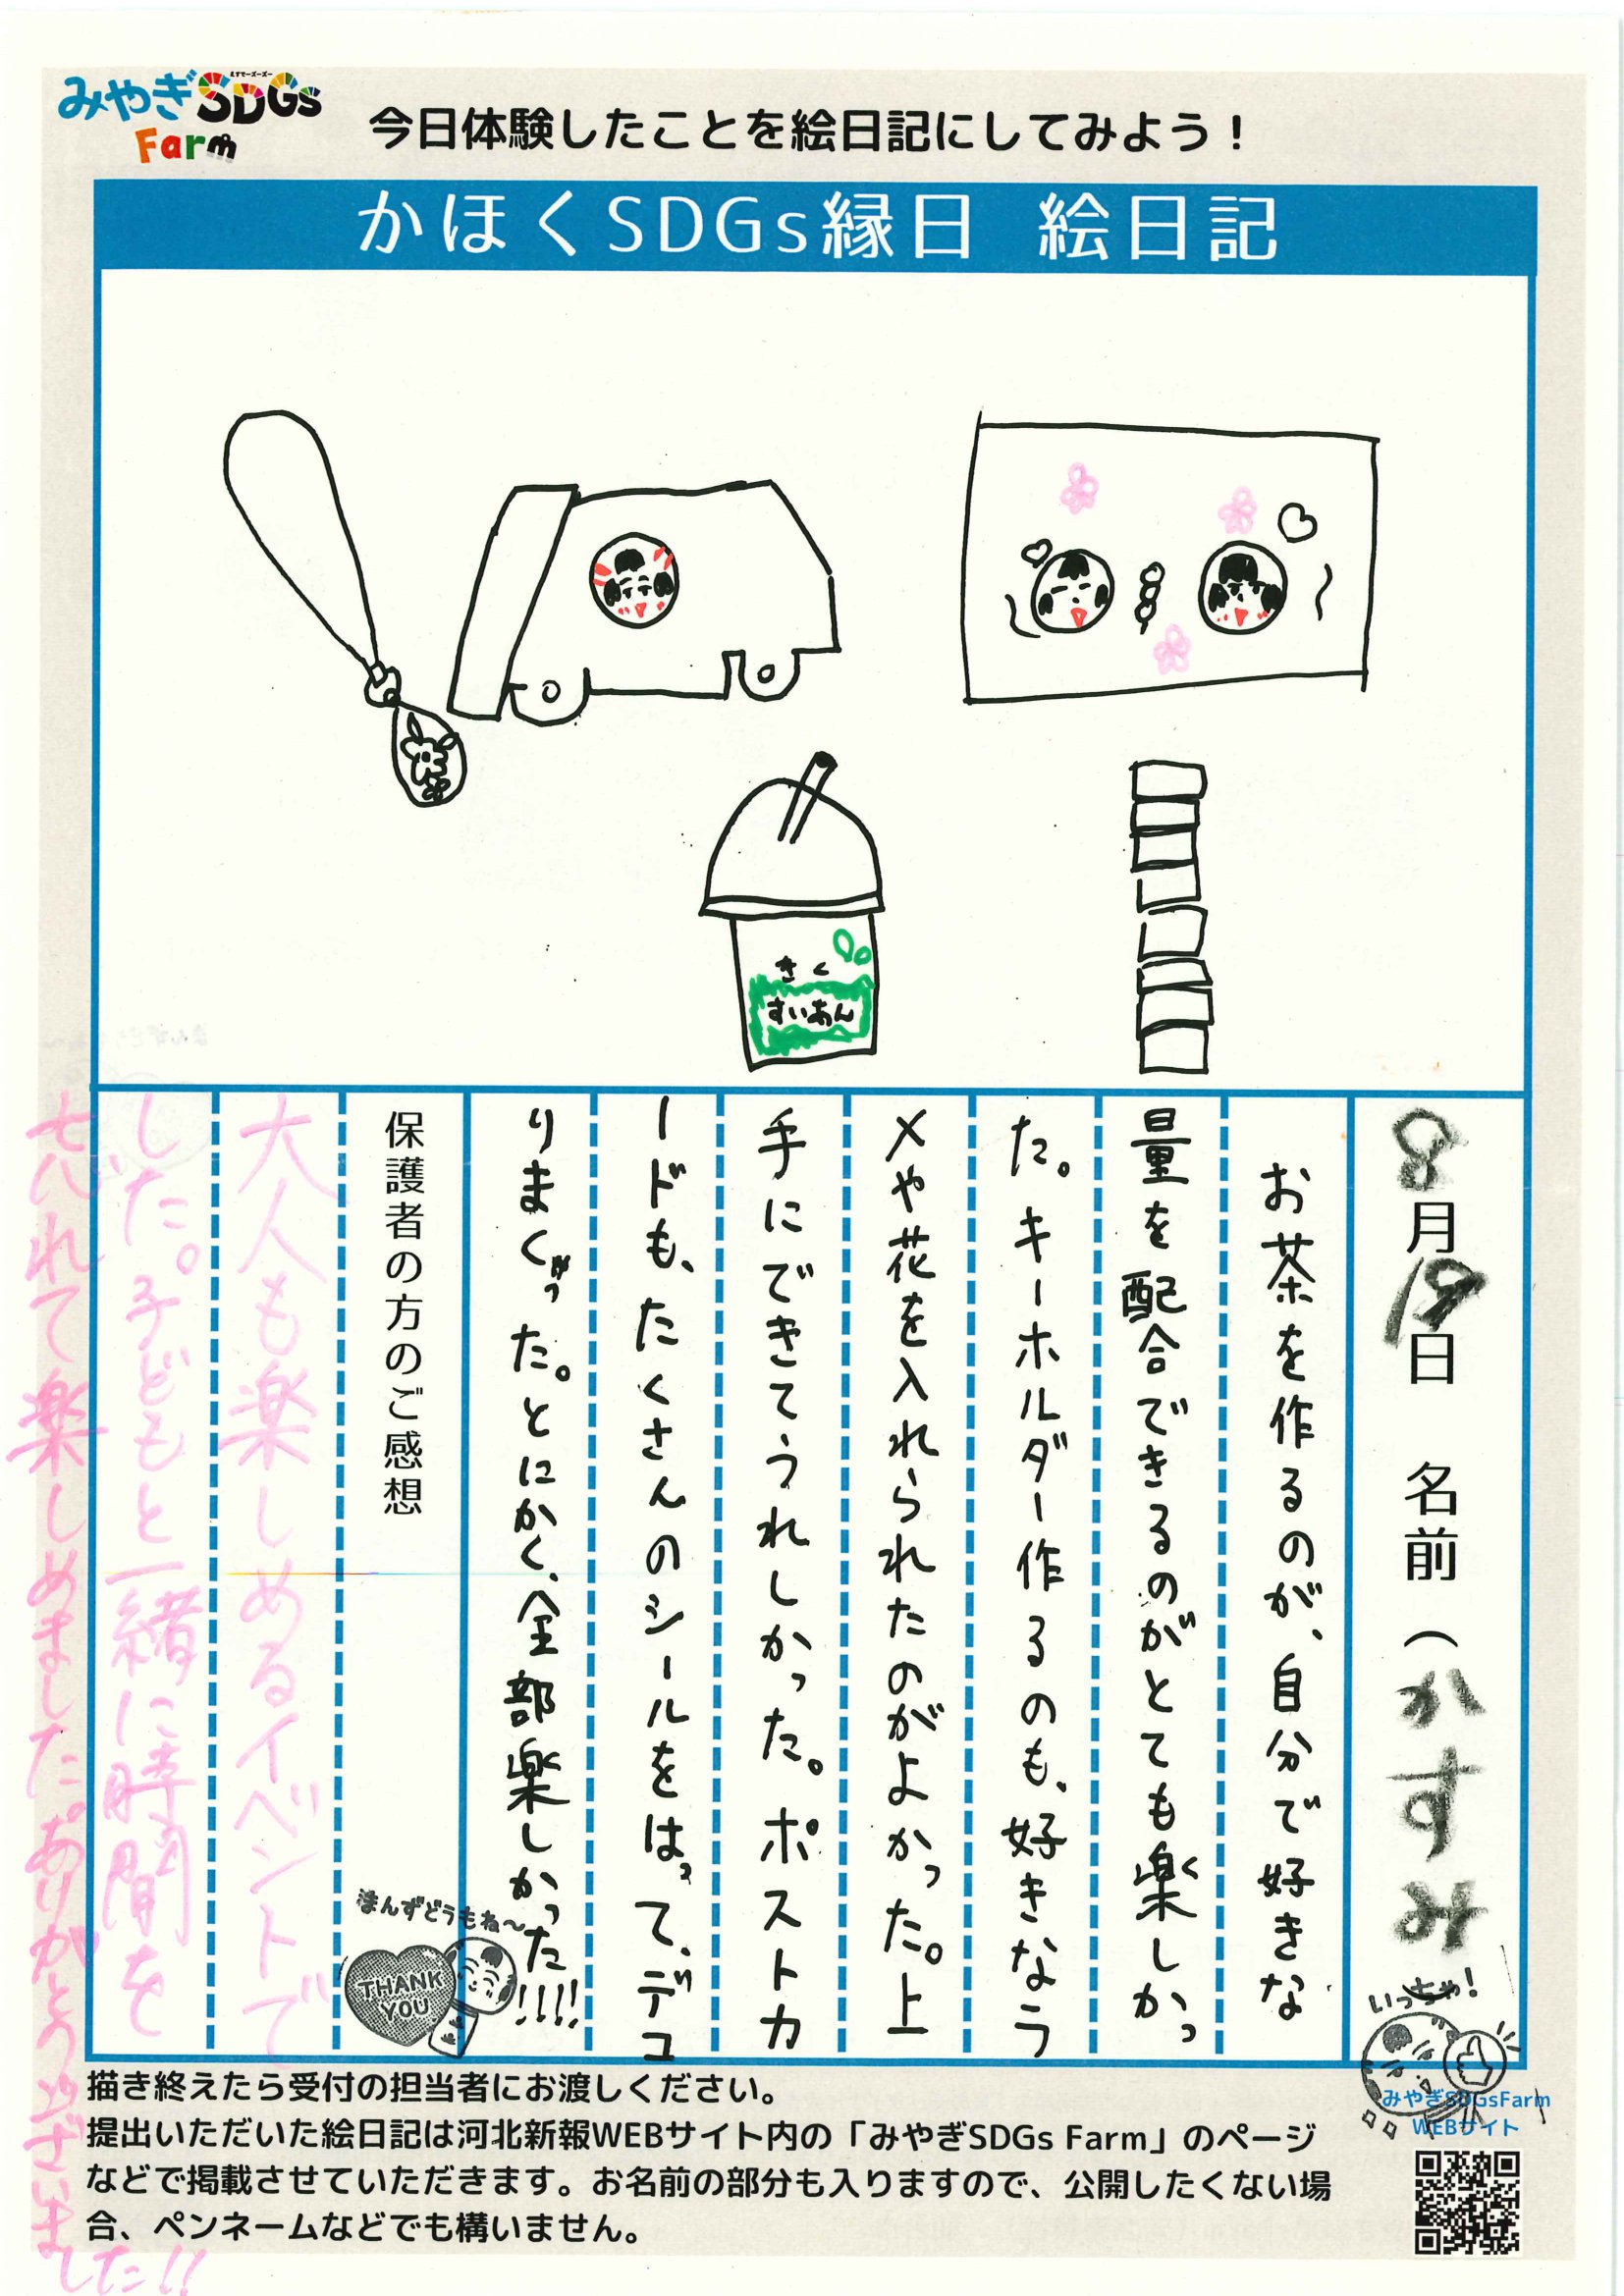 みやぎSDGs
Farm
今日体験したことを絵日記にしてみよう！
かほくSDGs縁日 絵日記
きく
すいあん
8月日 名前（かすみ
お茶を作るのが、自分で好きな
量を配合できるのがとても楽しかっ
た。キーホルダー作るのも、好きなラ
メや花を入れられたのがよかった。上
手にできてうれしかった。ポストカ
ードも、たくさんのシールをはって、デコ
りまくった。とにかく、全部楽しかった!!!!
保護者の方のご感想
大人も楽しめるイベントで
した。子どもと一緒に時間を
忘れて楽しめました。ありがとうございました!!
まんずどうもね〜
THANK
YOU
いっちゃ!
描き終えたら受付の担当者にお渡しください。
提出いただいた絵日記は河北新報WEBサイト内の「みやぎSDGs Farm」のページ
などで掲載させていただきます。お名前の部分も入りますので、公開したくない場
合、ペンネームなどでも構いません。
みやぎSDGsFarm
WEBサイト